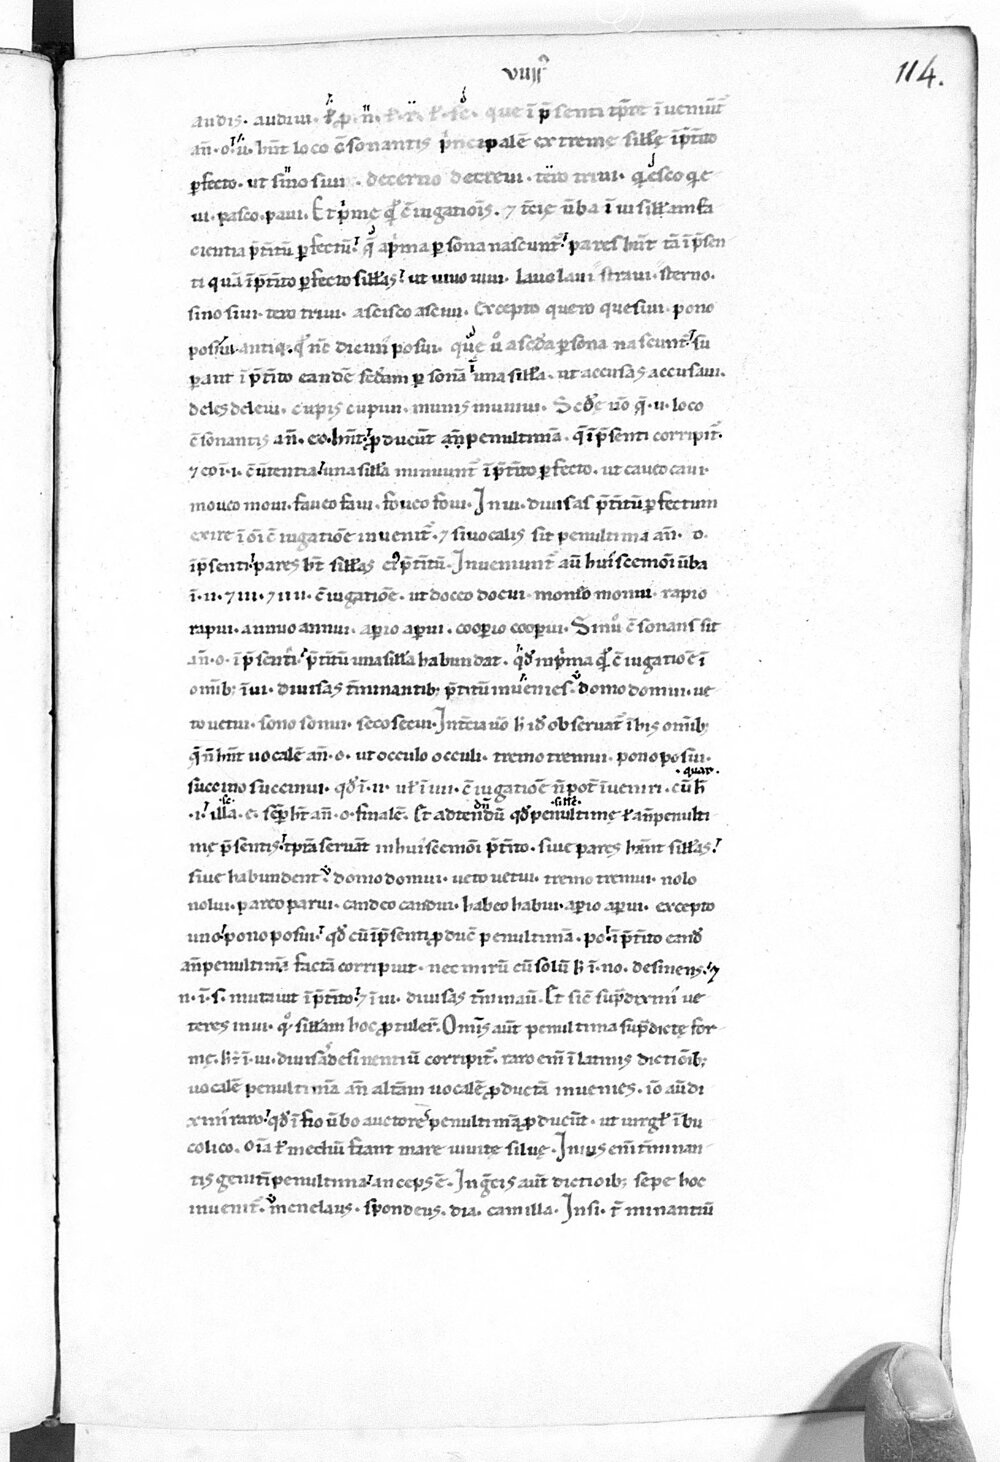 viiii
114.
audis. audiui. ł p. n. ł. r. ł. s. que ī p̄senti tp̄re īueniūt᷑
an̄. o. u. hn̄t loco c̄sonantis p̍ncipalē extremę sillę īp̄tito
ꝑfecto. ut sino siui. decerno decreui. tero triui. q̍esco q̍e
ui. pasco. paui. Et p̍mę q̍ c̄iugatiōis. ⁊ t̄cię ūba ī ui sillam fa
cientia p̄titū ꝑfectū. q̄ a p̍ma ꝑsona nascunt᷑ pares hn̄t tā ī p̄sen
ti quā īp̄tito ꝑfecto sillas. ut uiuo uixi. lauo laui straui. sterno.
sino siui. tero triui. ascisco asciui. Excepto quero quesiui. pono
posiui antiq. q̍ nc̄ dicim᷒ posui. quę ů a secd̄a ꝑsona nascunt᷑ su
ꝑant ī p̄tito eandē secd̄am ꝑsonā una silla. ut accusas accusaui.
deles deleui. cupis cupiui. munis muniui. Sed̄ę u̅o q̄. u. loco
c̄sonantis an̄. eo. hn̄t ꝓducūt an̄penultimā. q̄ ī p̄senti corripit᷑.
⁊ eo ī. i. c̄uertentia. una silla minuunt᷑ ī p̄tito ꝑfecto. ut caueo caui.
moueo moui. faueo faui. foueo foui. In ui. diuisas p̄titū ꝑfectum
exire ī oī c̄iugatiōe inuenit᷑. ⁊ si uocalis sit penultima an̄. o.
ī p̄senti pares hn̄t sillas ei᷒ p̄titū. Inueniunt᷑ aū huiscemōi ūba
ī. ii. ⁊ iii. ⁊ iiii. c̄iugatiōe. ut doceo docui. monstro monui. rapio
rapui. annuo annui. aꝑio aꝑui. cooꝑio cooꝑui. Sin ů c̄sonans sit
an̄. o. ī p̄senti p̄titū una silla habundat. q̍d in p̍ma q̍ c̄iugatiōe ī
omīb; ī ui. diuisas t̄minantib; p̄titū inuenies. domo domui. ue
to uetui. sono sonui. seco secui. In t̄cia u̅o h̄ id̄ obseruat᷑ ī his omīb;
q̄ n̄ hn̄t uocalē an̄. o. ut occulo occului. tremo tremui. pono posui.
succino succinui. qd̄ ī. ii. uł ī iiii. c̄iugatiōe n̄ pot̄ īueniri. cū h̄
quar.
.i. illa. e. semꝑ hn̄t an̄. o. finalē. Et adtendū qd̄ penultimę ł an̄penulti
mę p̄sentis tp̄ra seruāt in huiscemōi p̄tito. siue pares hn̄t sillas.
siue habundent. domo domui. ueto uetui. tremo tremui. nolo
nolui. pareo parui. candeo candui. habeo habui. aꝑio aꝑui. excepto
uno pono posui. qd̄ cū ī p̄senti ꝓduc̄ penultimā. po. ī p̄tito eand̄
an̄penultimā factā corripuit. nec mirū cū solū h̄ ī. no. desinens. ⁊
n. ī. s. mutauit ī p̄tito. ⁊ ī ui. diuisas t̄minauit. Et sic̄ sup̄diximus ue
teres in ui. q̊. sillam hoc ꝓtuler̄. Omīs aut̄ penultima sup̄dictę for
mę. h̄. ī. ui. diuisas desinentiū corripit᷑. raro em̄ ī latinis dictiōib;
uocalē penultimā an̄ altam uocalē ꝓductā inuenies. io̅ audi
xim᷒ raro. qd̄ ī fio ūbo auctores penultimā ꝓducūt. ut uirgł. ī bu
colico. oīa ł mediū fiant mare uiuite siluę. In ius em̄ t̄minan
tis genitī penultima anceps ē. In gr̄cis aut̄ dictiōib; sepe hoc
inuenit᷑. menelaus. spondeus. dia. camilla. In si. t̄minantiū